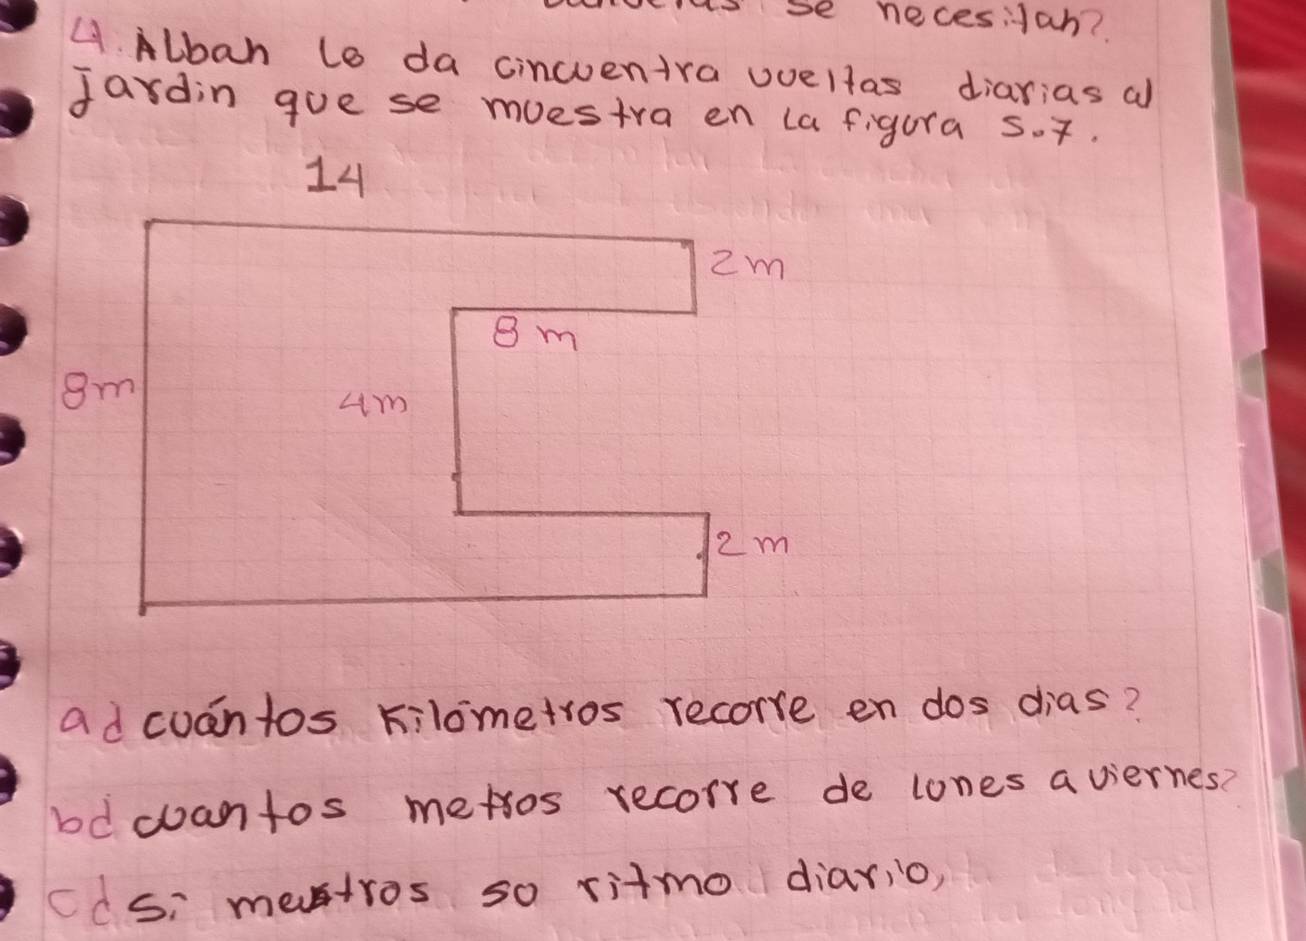 se necesitan?
4. Alban le da cincuentra vueltas diarias al
jardin que se muestra en la figura 5.7.
14
2m
8 m
8m
4m
2 m
a¿ cuántos Kilómetros recorre en dos dias?
b¿ cuantos metros recorre de lunes a viernes?
c¿ si
so ritmo diario,